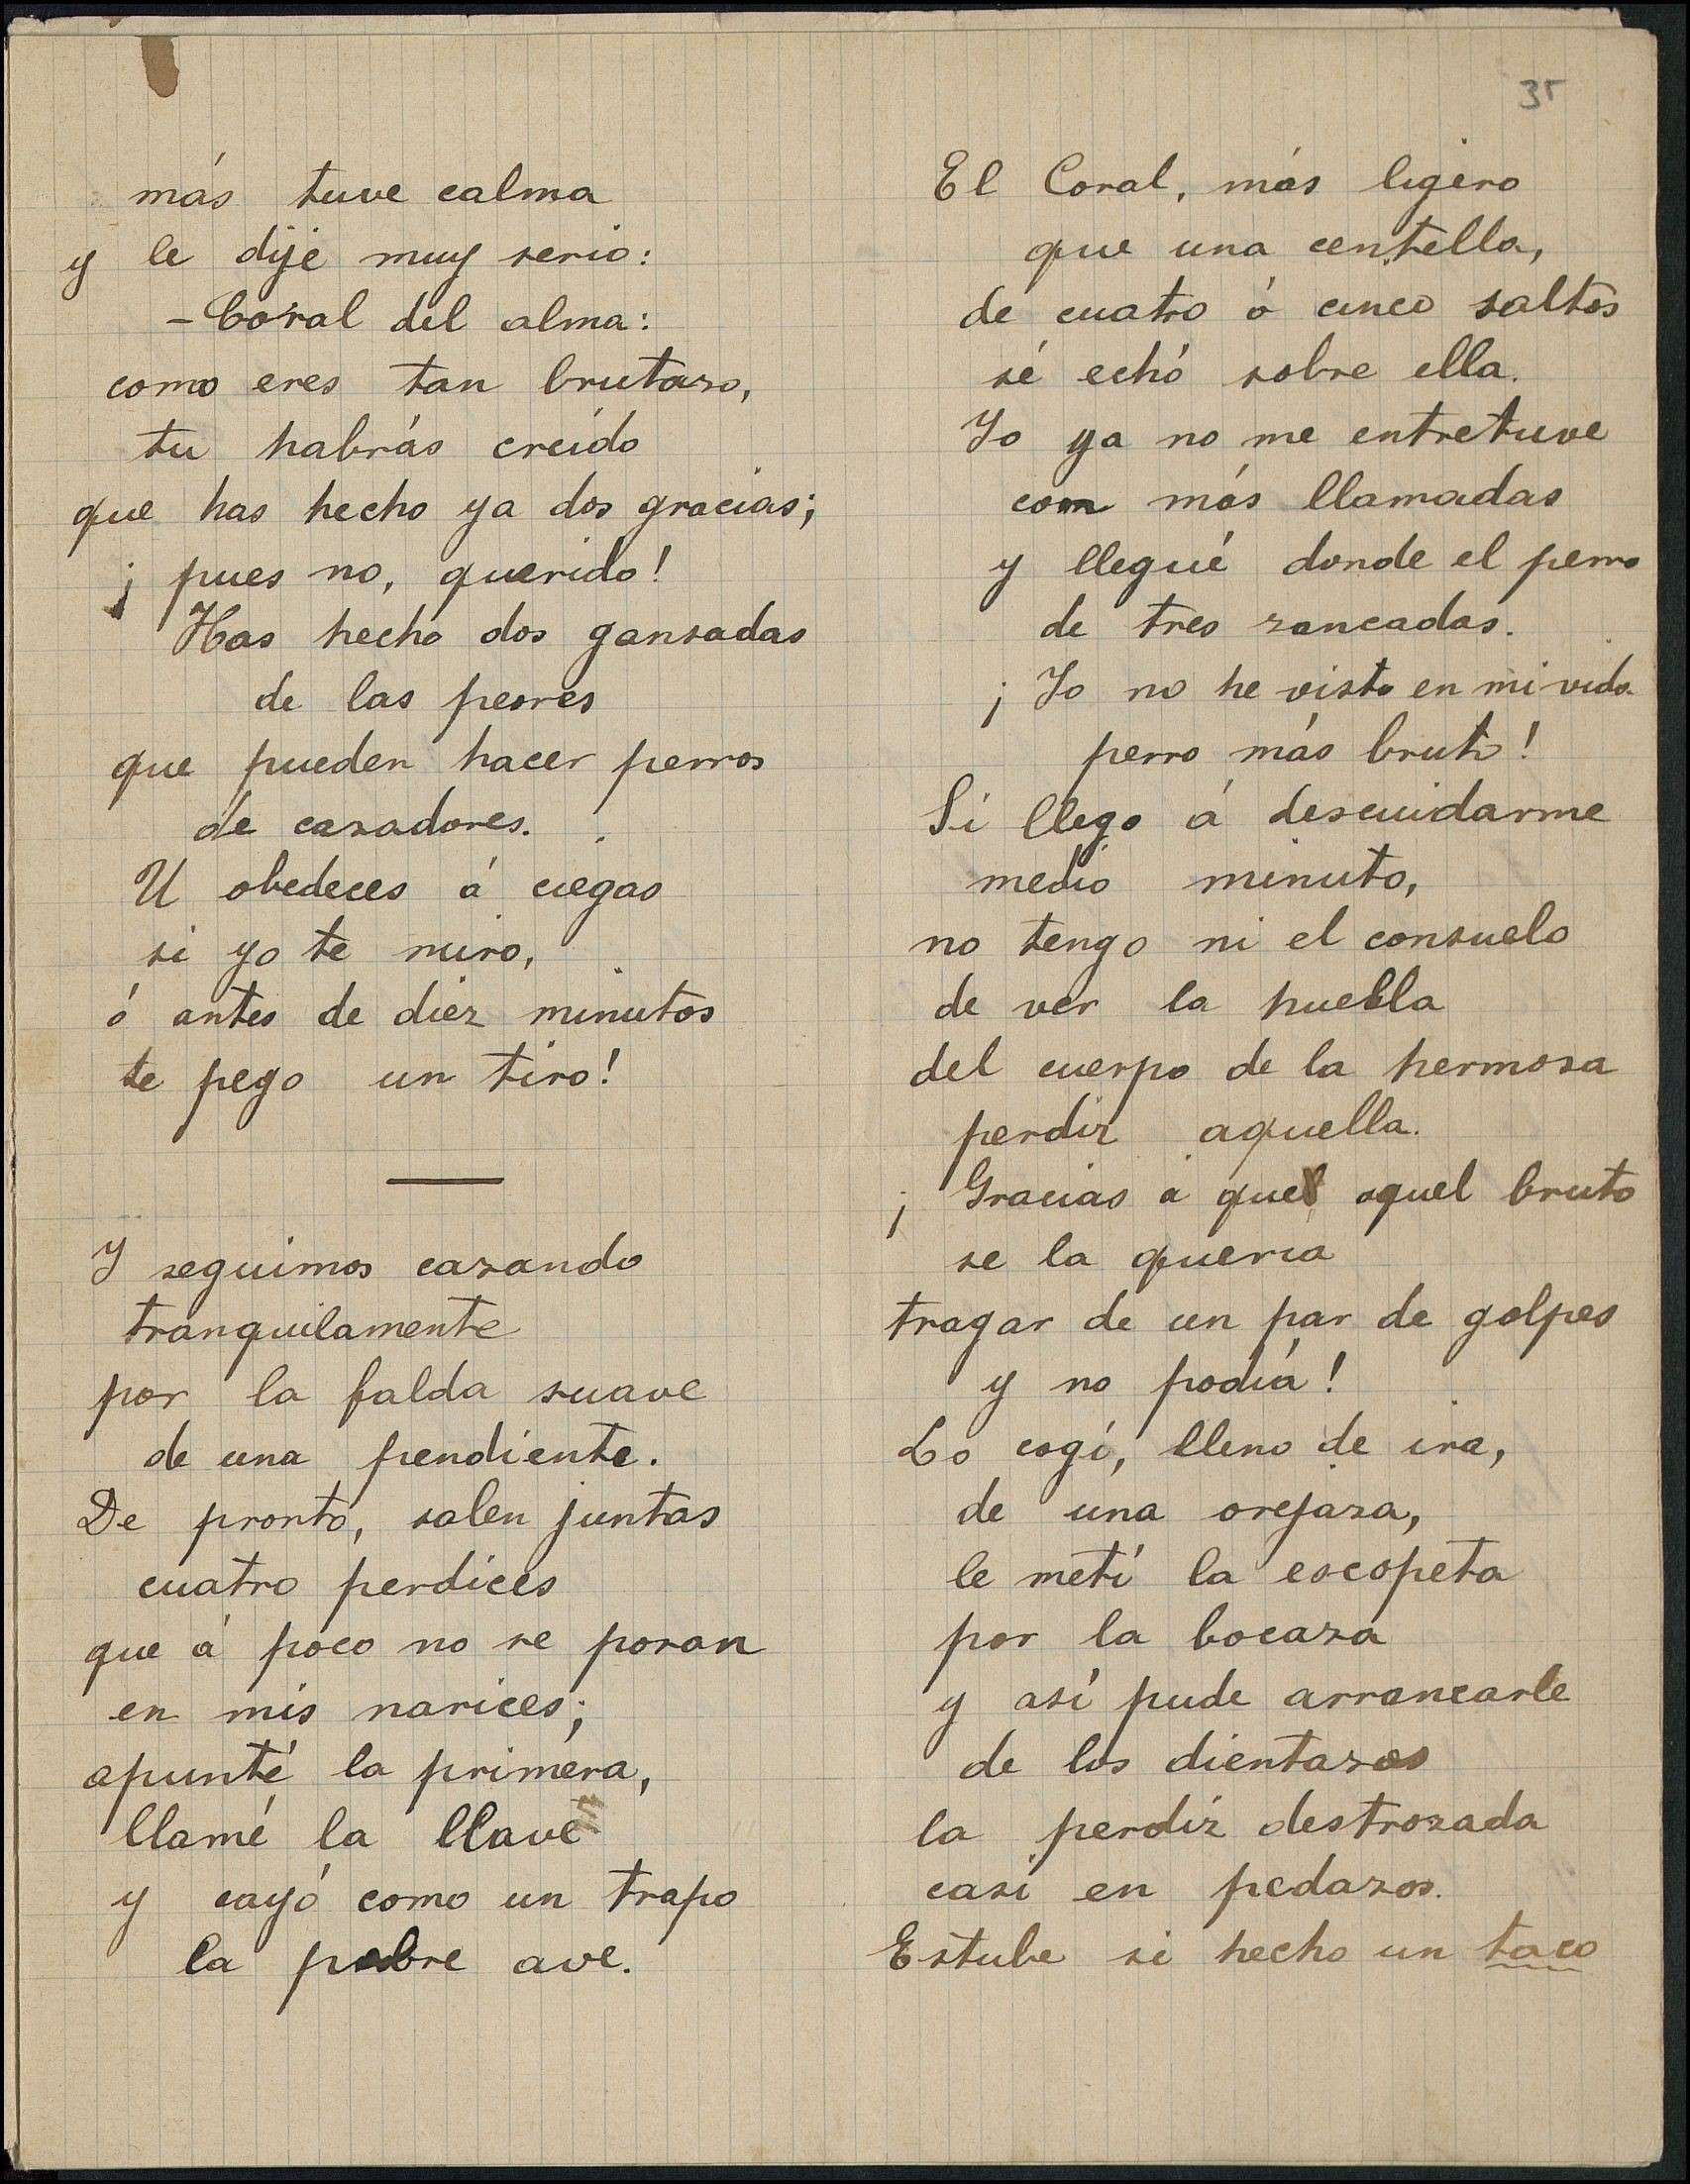 35
más tuve calma
y le dije muy serio:
- Coral del alma:
como eres tan brutazo,
tu habrás creído
que has hecho ya dos gracias;
¡ pues no, querido!
Has hecho dos gansadas
de las peores
que pueden hacer perros
de cazadores.
U obedeces á ciegas
si yo te miro,
ó antes de diez minutos
te pego un tiro!
Y seguimos cazando
tranquilamente
por la falda suave
de una pendiente.
De pronto, salen juntas
cuatro perdices
que á poco no se poran
en mis narices;
apunté la primera,
llamé la llave
y cayó como un trapo
la pobre ave.
El Coral, más ligero
que una centella,
de cuatro ó cinco saltos
sé echó sobre ella.
Yo ya no me entretuve
con más llamadas
y llegué donde el perro
de tres zancadas.
¡ Yo no he visto en mi vida
perro más bruto!
Si llego á descuidarme
medio minuto,
no tengo ni el consuelo
de ver la huella
del cuerpo de la hermosa
perdiz aquella.
¡ Gracias á que aquel bruto
se la queria
tragar de un par de golpes
y no podía!
Lo cogí, lleno de ira,
de una orejaza,
le metí la escopeta
por la bocaza
y así pude arrancarle
de los dientazos
la perdiz destrozada
casi en pedazos.
Estube si hecho un taco